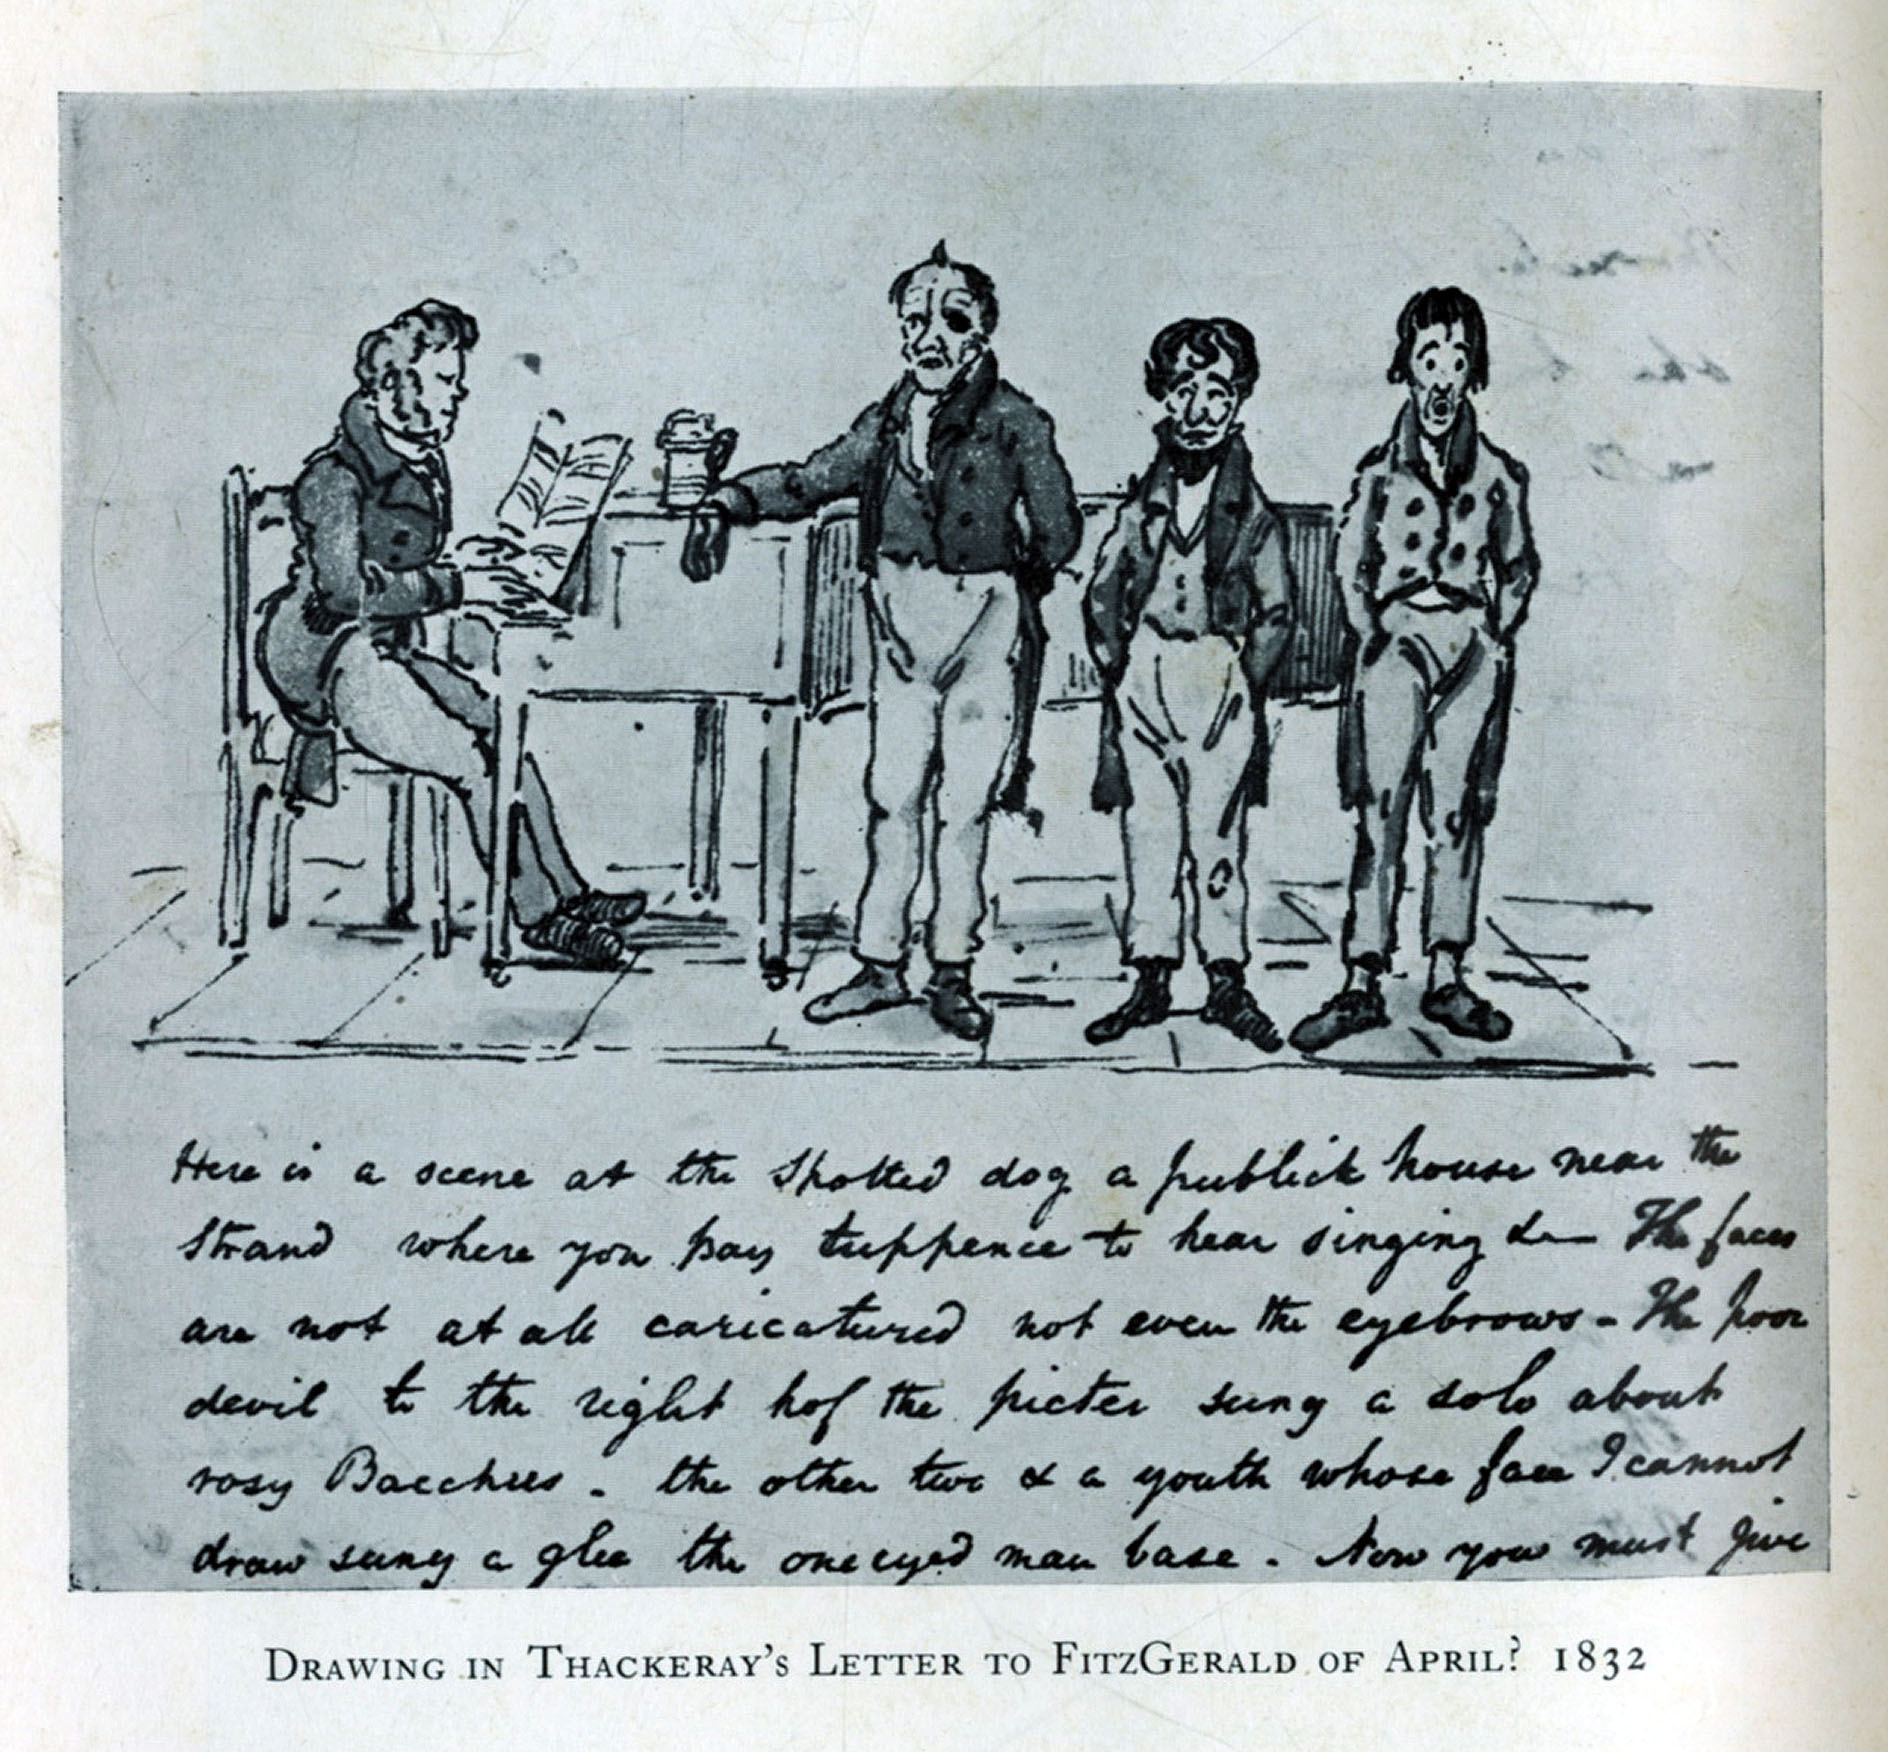 Here is a scene at the Spotted dog a publick house near the
Strand where you pay tuppence to hear singing &c— The faces
are not at all caricatured not even the eyebrows - The poor
devil to the right hof the picter sung a solo about
rosy Bacchus - the other two & a youth whose face I cannot
draw sung a glee the one eyed man base - Now you must give
DRAWING IN THACKERAY'S LETTER TO FITZGERALD OF APRIL? 1832